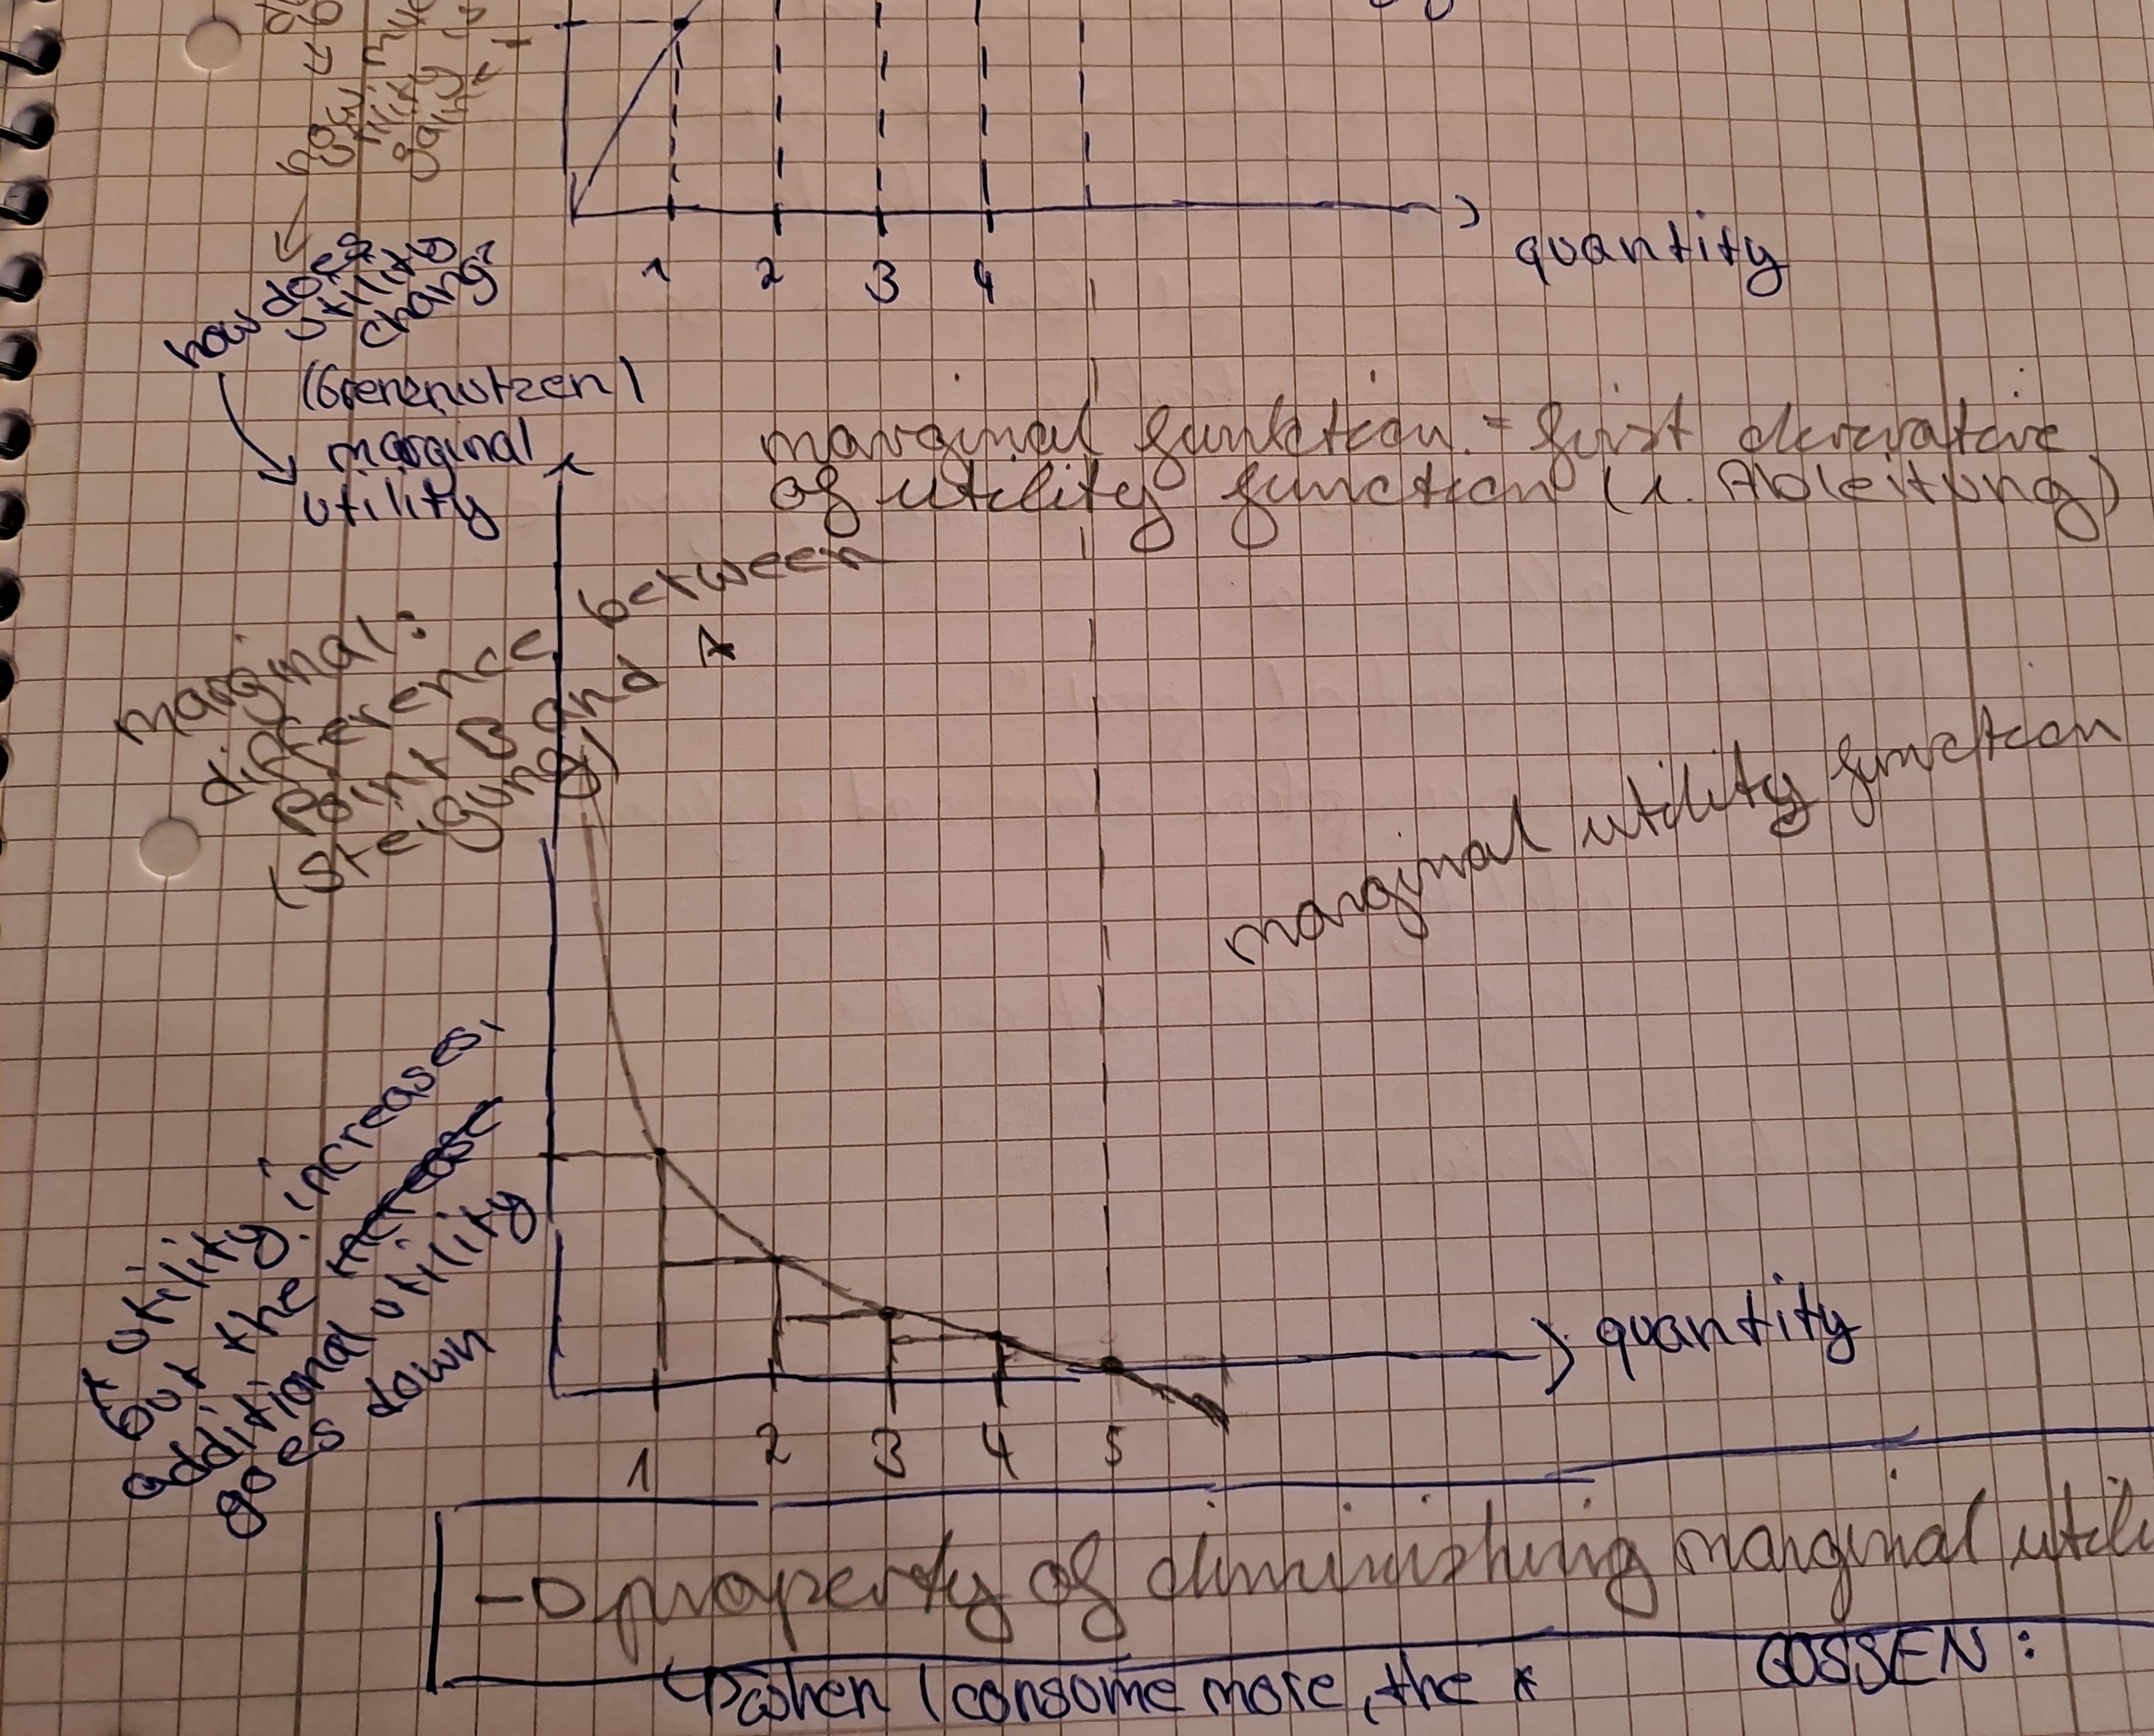 how
utility
gain
1 2 3 4
quantity
how does
utility
change
(Grenznutzen)
marginal
utility
marginal function = first derivative
of utility function (1. Ableitung)
marginal:
difference between
point B and A
(Steigung)
marginal utility function
* utility increases,
but the increase
additional utility
goes down
quantity
1 2 3 4 5
→ property of diminishing marginal utili
↳ when I consume more, the *
GOSSEN: